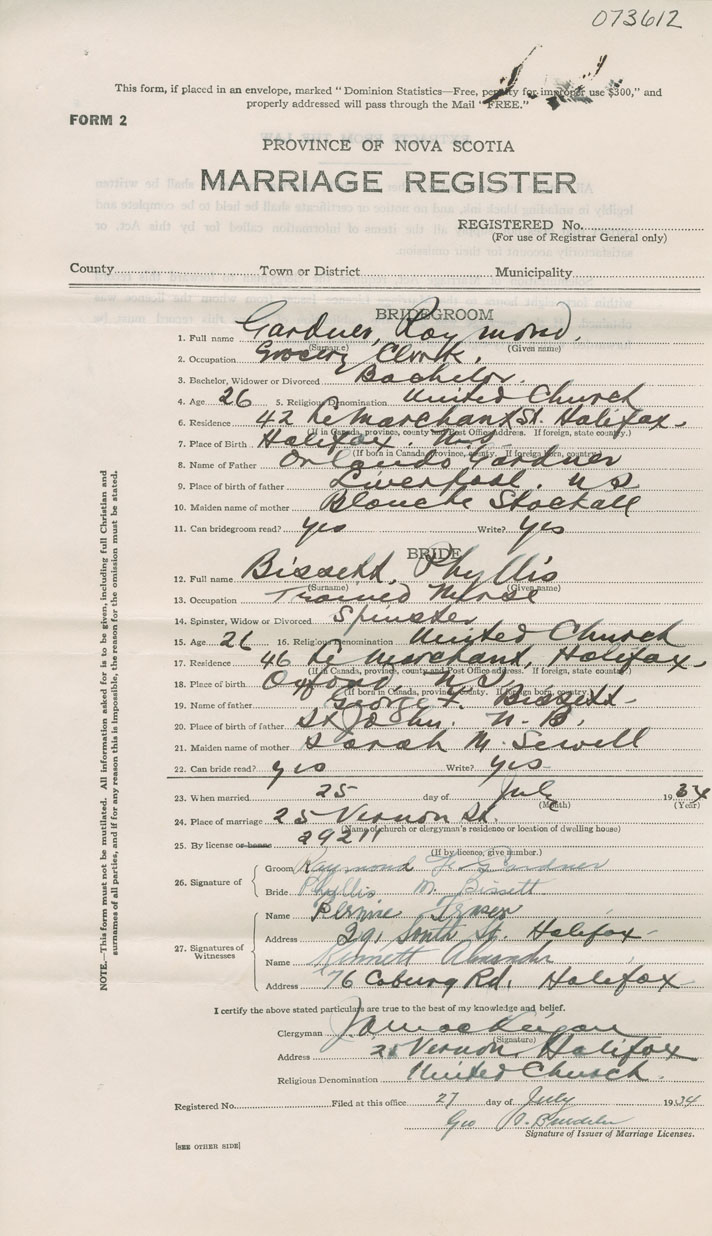 073612
This form, if placed in an envelope, marked "Dominion Statistics—Free, penalty for improper use $300," and
properly addressed will pass through the Mail "FREE."
FORM 2
PROVINCE OF NOVA SCOTIA
MARRIAGE REGISTER
REGISTERED No.
(For use of Registrar General only)
County Town or District Municipality
BRIDEGROOM
1. Full name Gardner, Raymond.
(Surname) (Given name)
2. Occupation Grocery Clerk.
3. Bachelor, Widower or Divorced Bachelor.
4. Age 26 5. Religious Denomination United Church
6. Residence 42 Le Marchant St. Halifax.
(If in Canada, province, county and Post Office address. If foreign, state country.)
7. Place of Birth Halifax. N.S.
(If born in Canada, province, county. If foreign born, country)
8. Name of Father Orlando Gardner
9. Place of birth of father Liverpool. N S
10. Maiden name of mother Blanche
11. Can bridegroom read? yes Write? yes
BRIDE
12. Full name Bissett, Phyllis
(Surname) (Given name)
13. Occupation Trained Nurse
14. Spinster, Widow or Divorced Spinster
15. Age 26 16. Religious Denomination United Church
17. Residence 46 Le Marchant, Halifax.
(If in Canada, province, county and Post Office address. If foreign, state country.)
18. Place of birth Oxford, N.S.
(If born in Canada, province, county. If foreign born, country.)
19. Name of father George F. Bissett
20. Place of birth of father St. John. N. B.
21. Maiden name of mother Sarah M. Sewell
22. Can bride read? yes Write? yes
23. When married 25 day of July 1934
(Month) (Year)
24. Place of marriage 25 Vernon St.
(Name of church or clergyman's residence or location of dwelling house)
25. By license or banns 29211
(If by licence, give number.)
26. Signature of
Groom Raymond F. Gardner
Bride Phyllis M. Bissett
27. Signatures of Witnesses
Name Fraser
Address 391 South St. Halifax
Name Kenneth Alexander
Address 76 Coburg Rd. Halifax
I certify the above stated particulars are true to the best of my knowledge and belief.
Clergyman
(Signature)
Address 25 Vernon Halifax
Religious Denomination United Church.
Registered No. Filed at this office 27 day of July 1934
Geo
Signature of Issuer of Marriage Licenses.
[SEE OTHER SIDE]
NOTE.—This form must not be mutilated. All information asked for is to be given, including full Christian and
surnames of all parties, and if for any reason this is impossible, the reason for the omission must be stated.